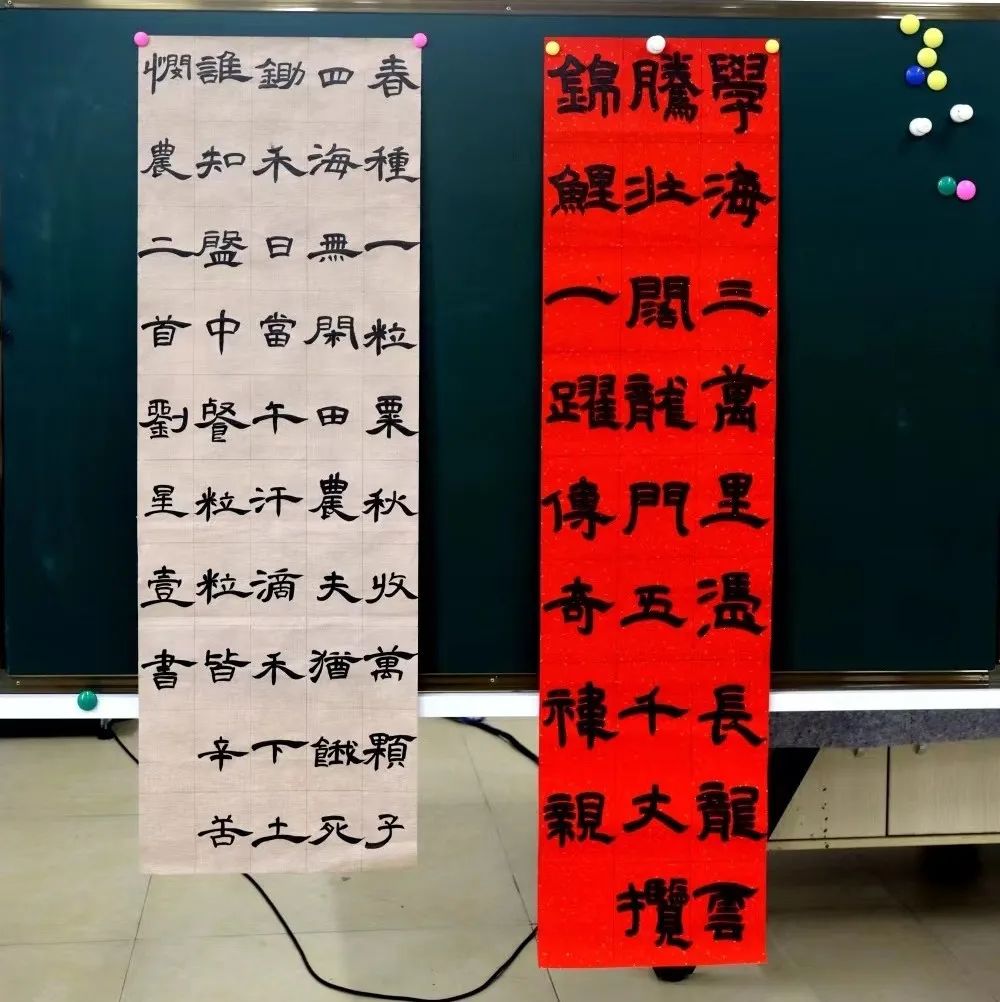 學海三萬里憑長龍雲
騰壯闊龍門五千丈攬
錦鯉一躍傳奇禕親
春種一粒粟秋收萬顆子
四海無閑田農夫猶餓死
鋤禾日當午汗滴禾下土
誰知盤中餐粒粒皆辛苦
憫農二首劉星壹書